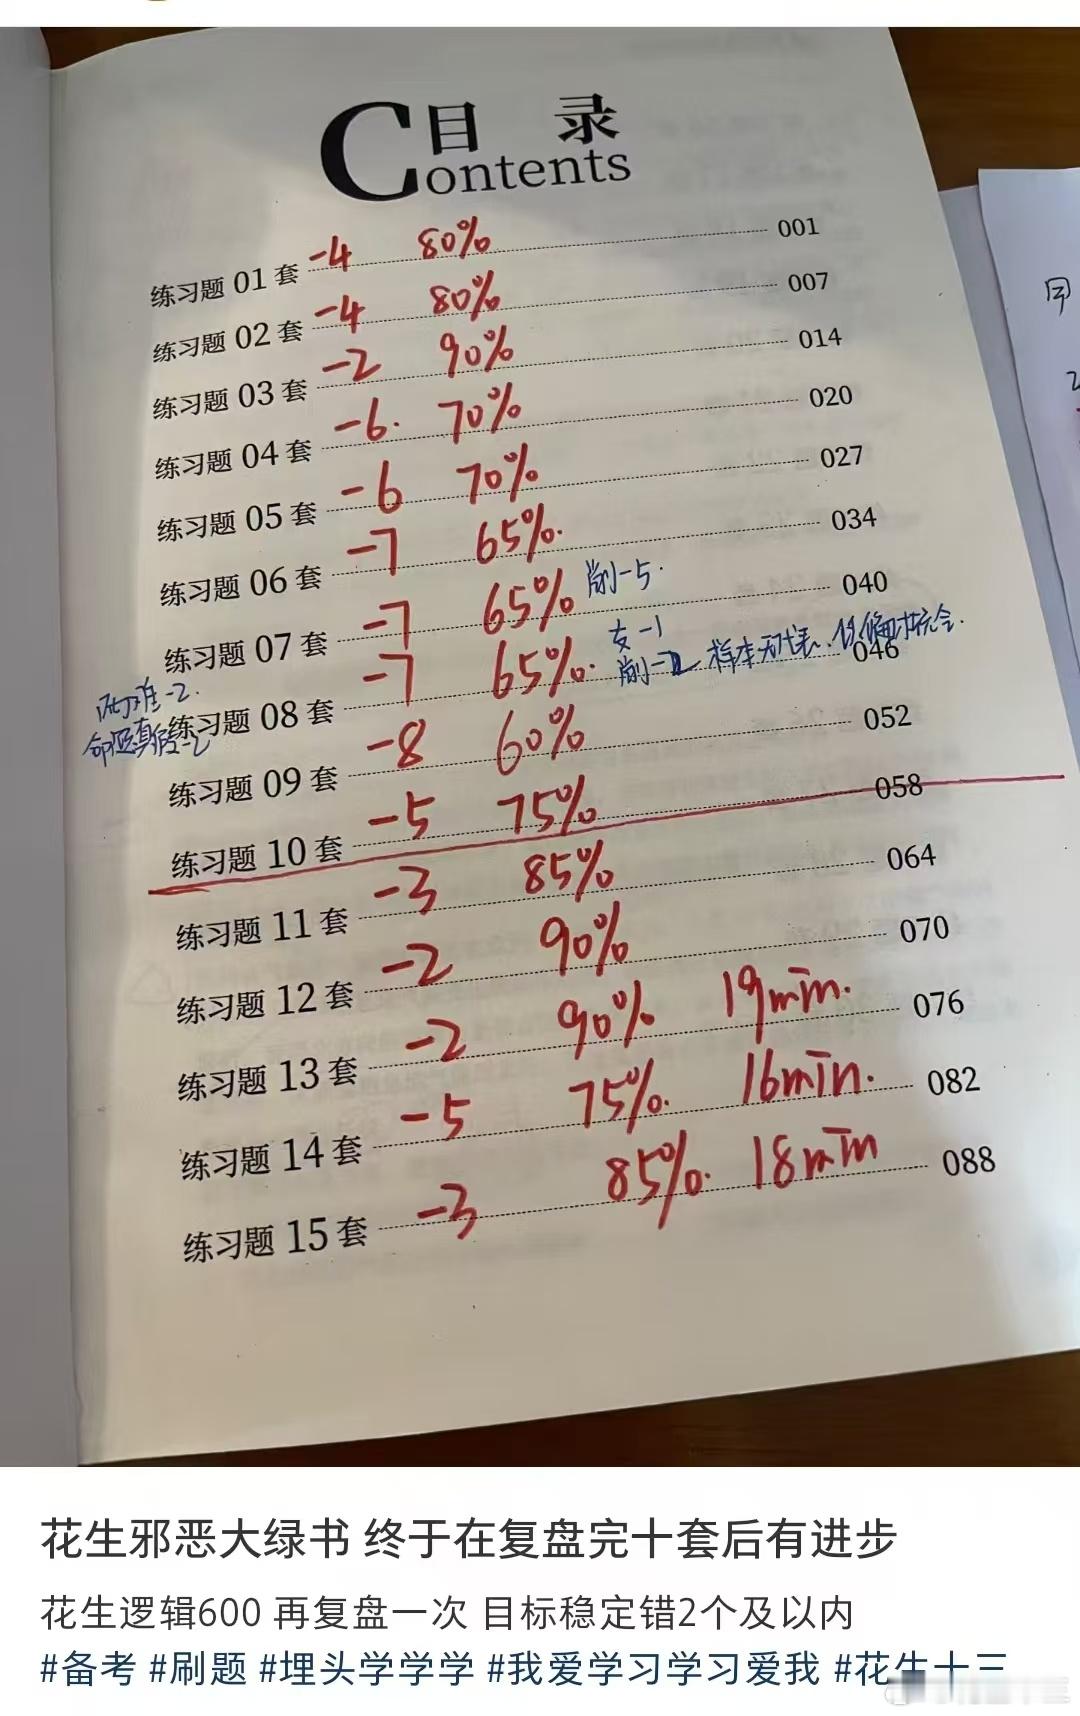 目 录
Contents
练习题 01 套 -4 80% 001
练习题 02 套 -4 80% 007
练习题 03 套 -2 90% 014
练习题 04 套 -6. 70% 020
练习题 05 套 -6 70% 027
练习题 06 套 -7 65%. 034
练习题 07 套 -7 65% 削-5. 040
女-1
练习题 08 套 -7 65%. 削-2 样本无代表. 046
两难-2.
命题真假-2
练习题 09 套 -8 60% 052
练习题 10 套 -5 75% 058
练习题 11 套 -3 85% 064
练习题 12 套 -2 90% 070
练习题 13 套 -2 90% 19min. 076
练习题 14 套 -5 75%. 16min. 082
练习题 15 套 -3 85%. 18min 088
甲
花生邪恶大绿书 终于在复盘完十套后有进步
花生逻辑600 再复盘一次 目标稳定错2个及以内
#备考 #刷题 #埋头学学学 #我爱学习学习爱我 #花生十三